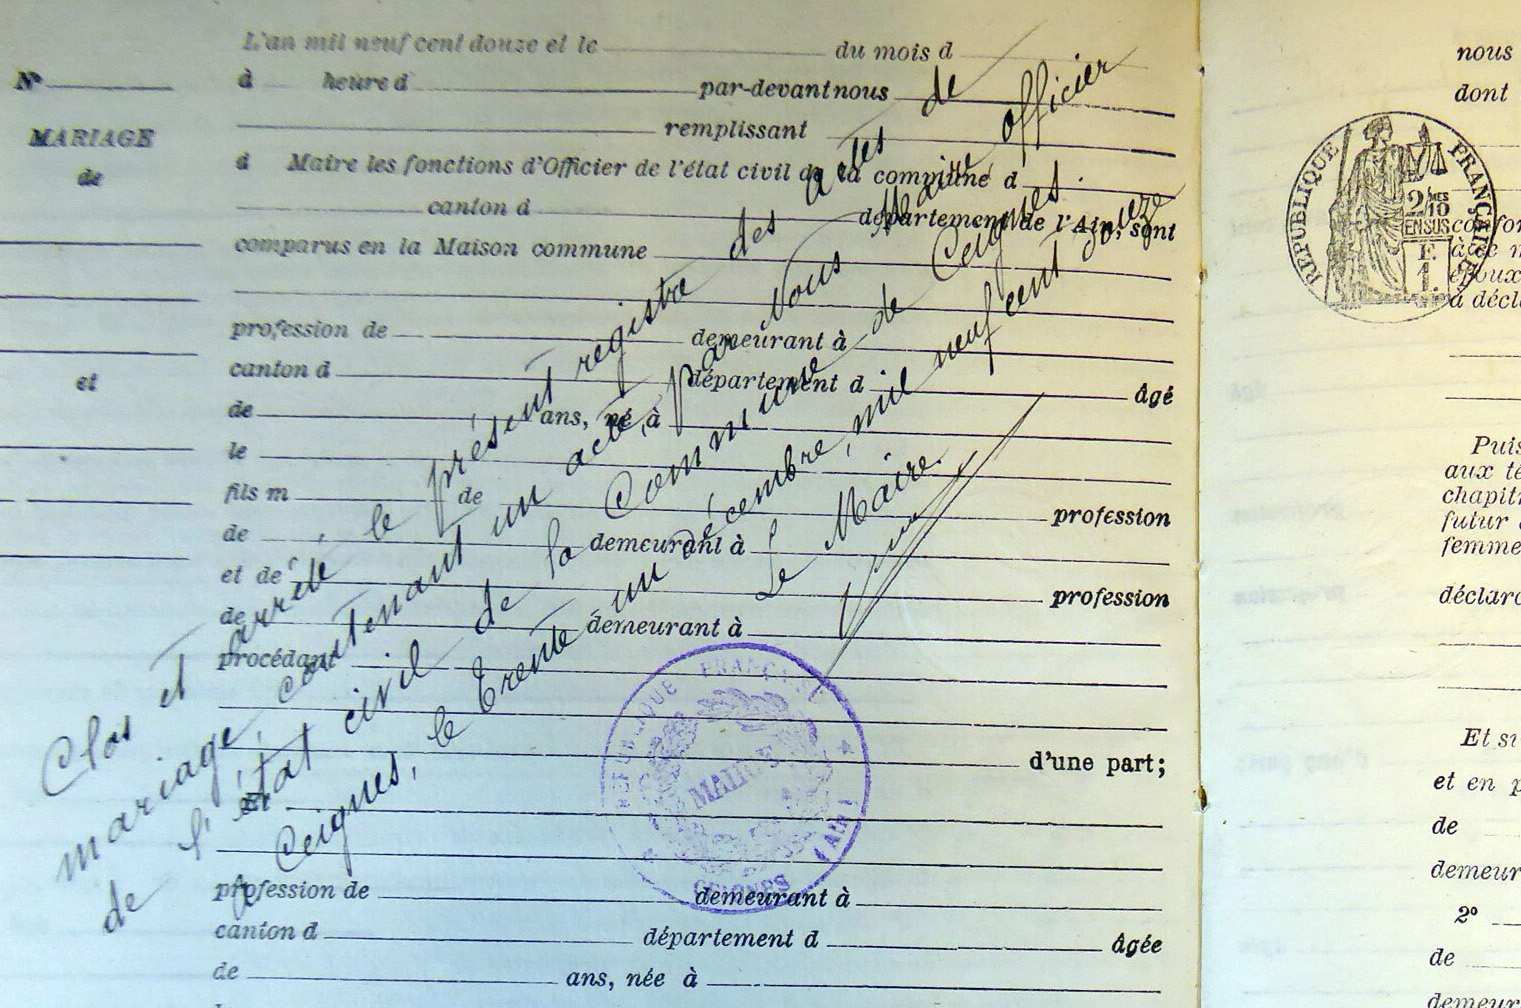 L'an mil neuf cent douze et le du mois d
Nº
à heure d par-devant nous
remplissant
MARIAGE
de
et
d Maire les fonctions d'Officier de l'état civil de la commune d
canton d département de l'Ain, sont
comparus en la Maison commune
profession de demeurant à
canton d département d âgé
de ans, né à
le
fils m de
de demeurant à profession
et de
de demeurant à profession
procédant
d'une part;
Et
profession de demeurant à
canton d département d âgée
de ans, née à
Clos et arrêté le présent registre des actes de
mariage, contenant un acte, par Nous Maire officier
de l'état civil de la Commune de Ceignes.
A Ceignes, le trente un décembre, mil neuf cent douze
Le Maire.
RÉPUBLIQUE FRANÇAISE
MAIRIE
CEIGNES (Ain)
nous
dont
RÉPUBLIQUE FRANÇAISE
2/10MES
EN SUS
1 F.
confor
à ce m
époux
a décla
Puis
aux te
chapit
futur
femme
déclaro
Et si
et en p
de
demeur
2º
de
demeur